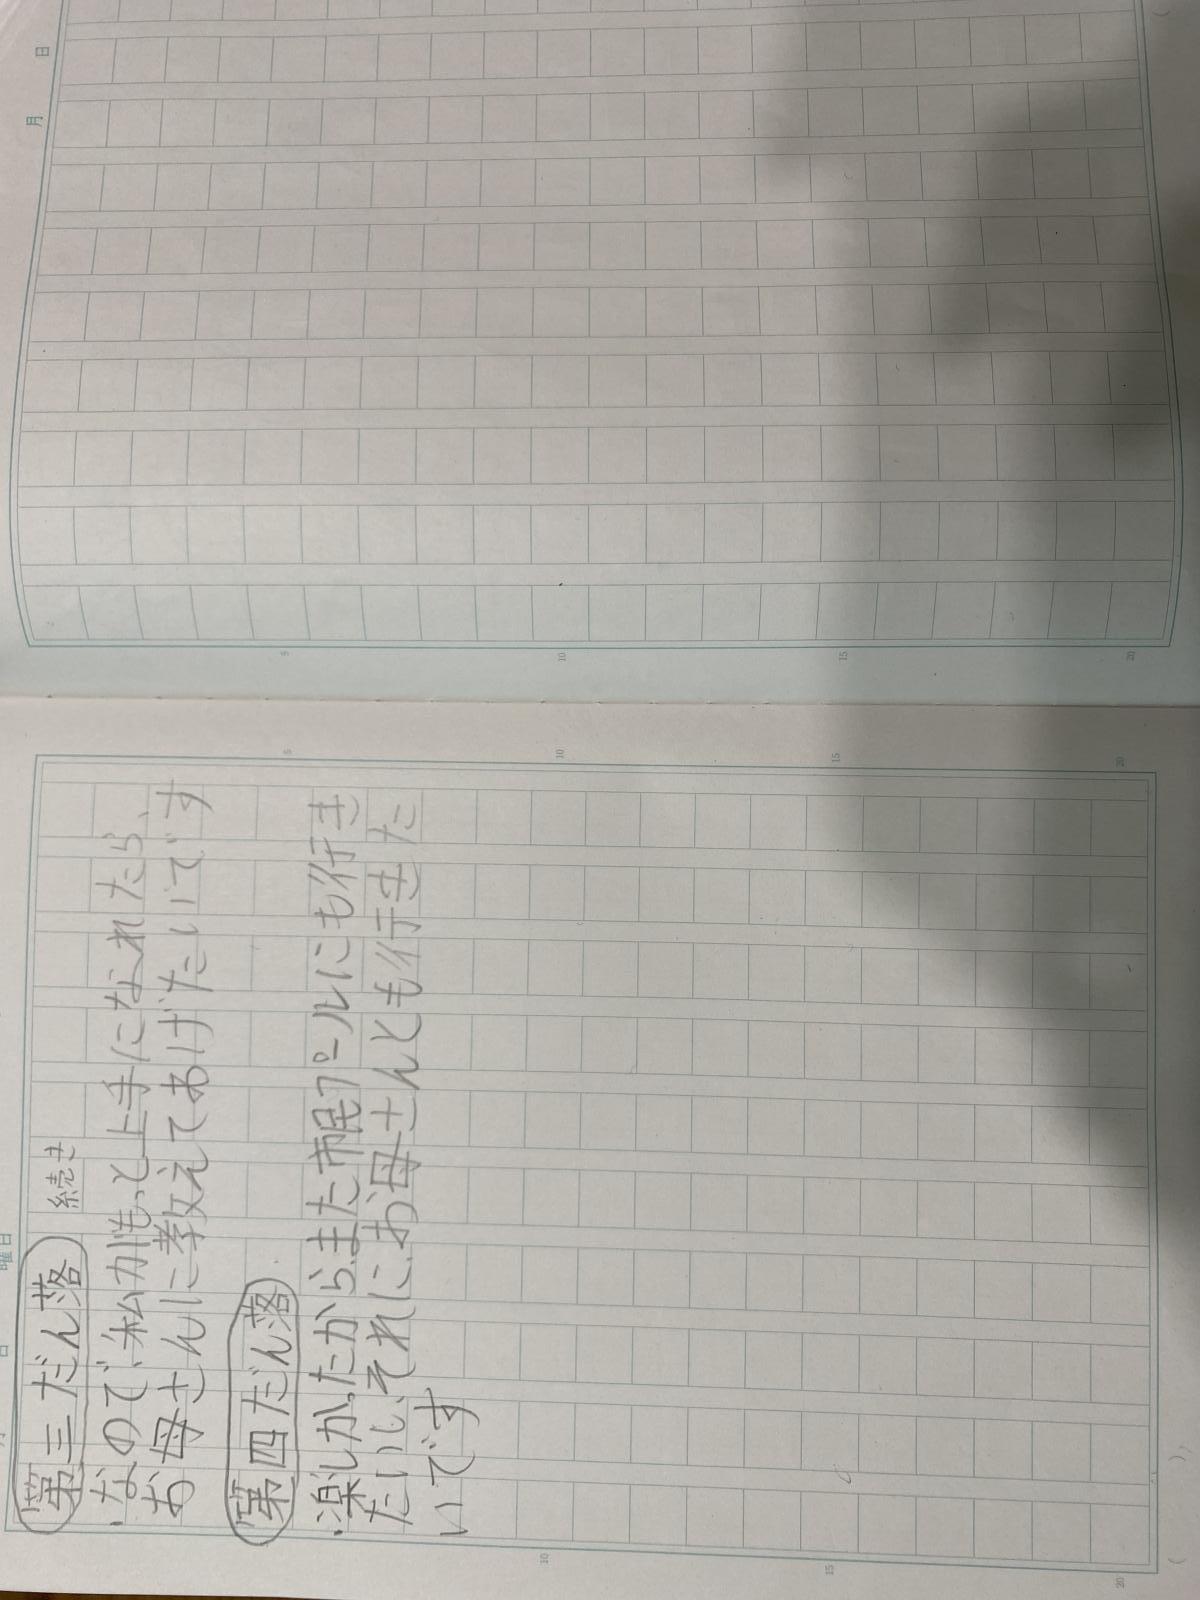 第三だん落 続き
・なので、私がもっと上手になれたら、
お母さんに教えてあげたいです
第四だん落
・楽しかったから、また市民プールにも行き
たいし、それに、お母さんとも行きた
いです
月 日
月 日 曜日
5 10 15 20
5 10 15 20
10 15 20